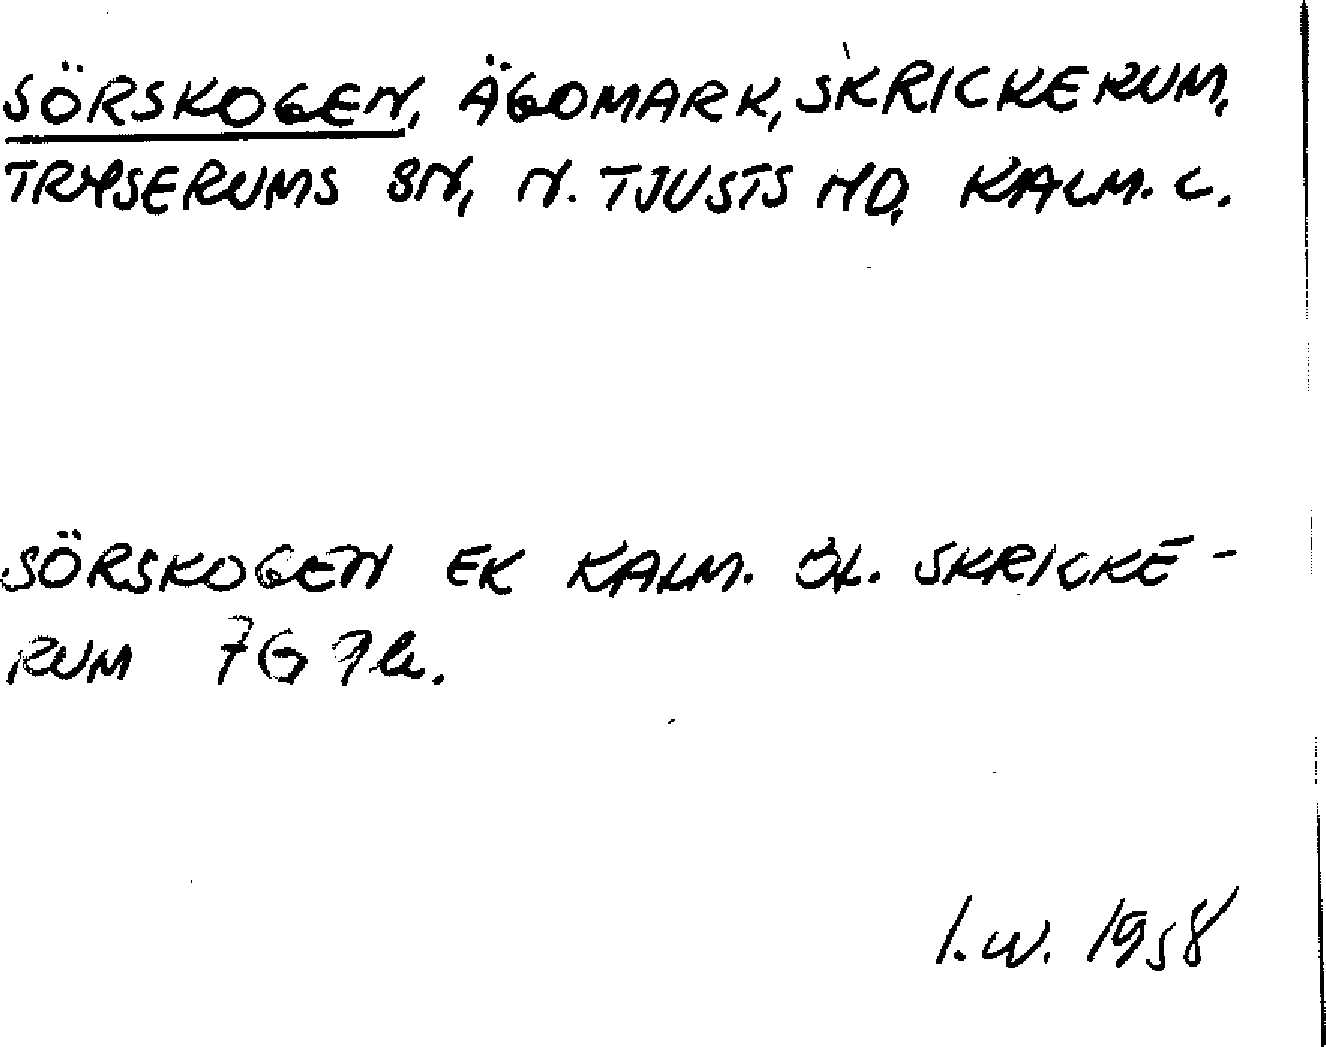 SÖRSKOGEN, ÄGOMARK, SKRICKERUM,
TRYSERUMS SN, N. TJUSTS HD, KALM. L.
SÖRSKOGEN EK KALM. BL. SKRICKE-
RUM 7G 7b.
I.W. 1958